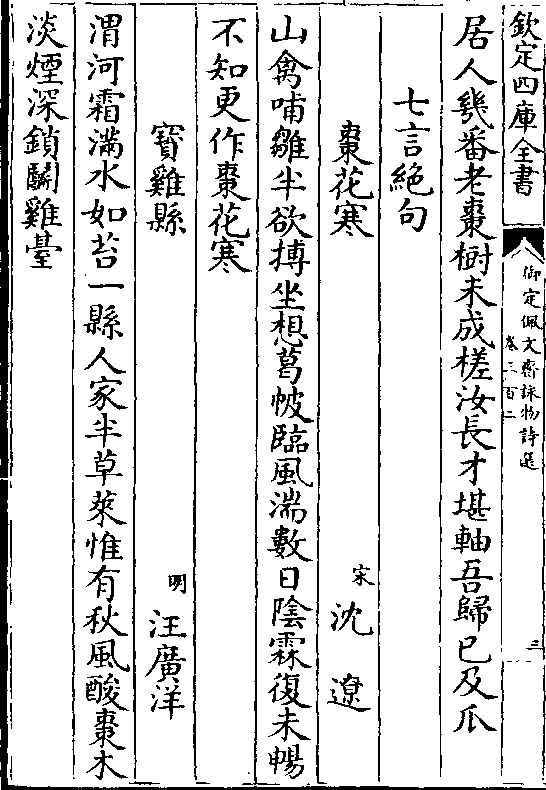 欽定四庫全書
御定佩文齋詠物詩選
卷三百二
三
居人幾番老棗樹未成槎汝長才堪軸吾歸已及瓜
七言絶句
棗花寒
宋 沈遼
山禽哺雛半欲摶坐想葛帔臨風湍數日陰霖復未暢
不知更作棗花寒
寳雞縣
明 汪廣洋
渭河霜滿水如苔一縣人家半草萊惟有秋風酸棗木
淡煙深鎖鬭雞臺